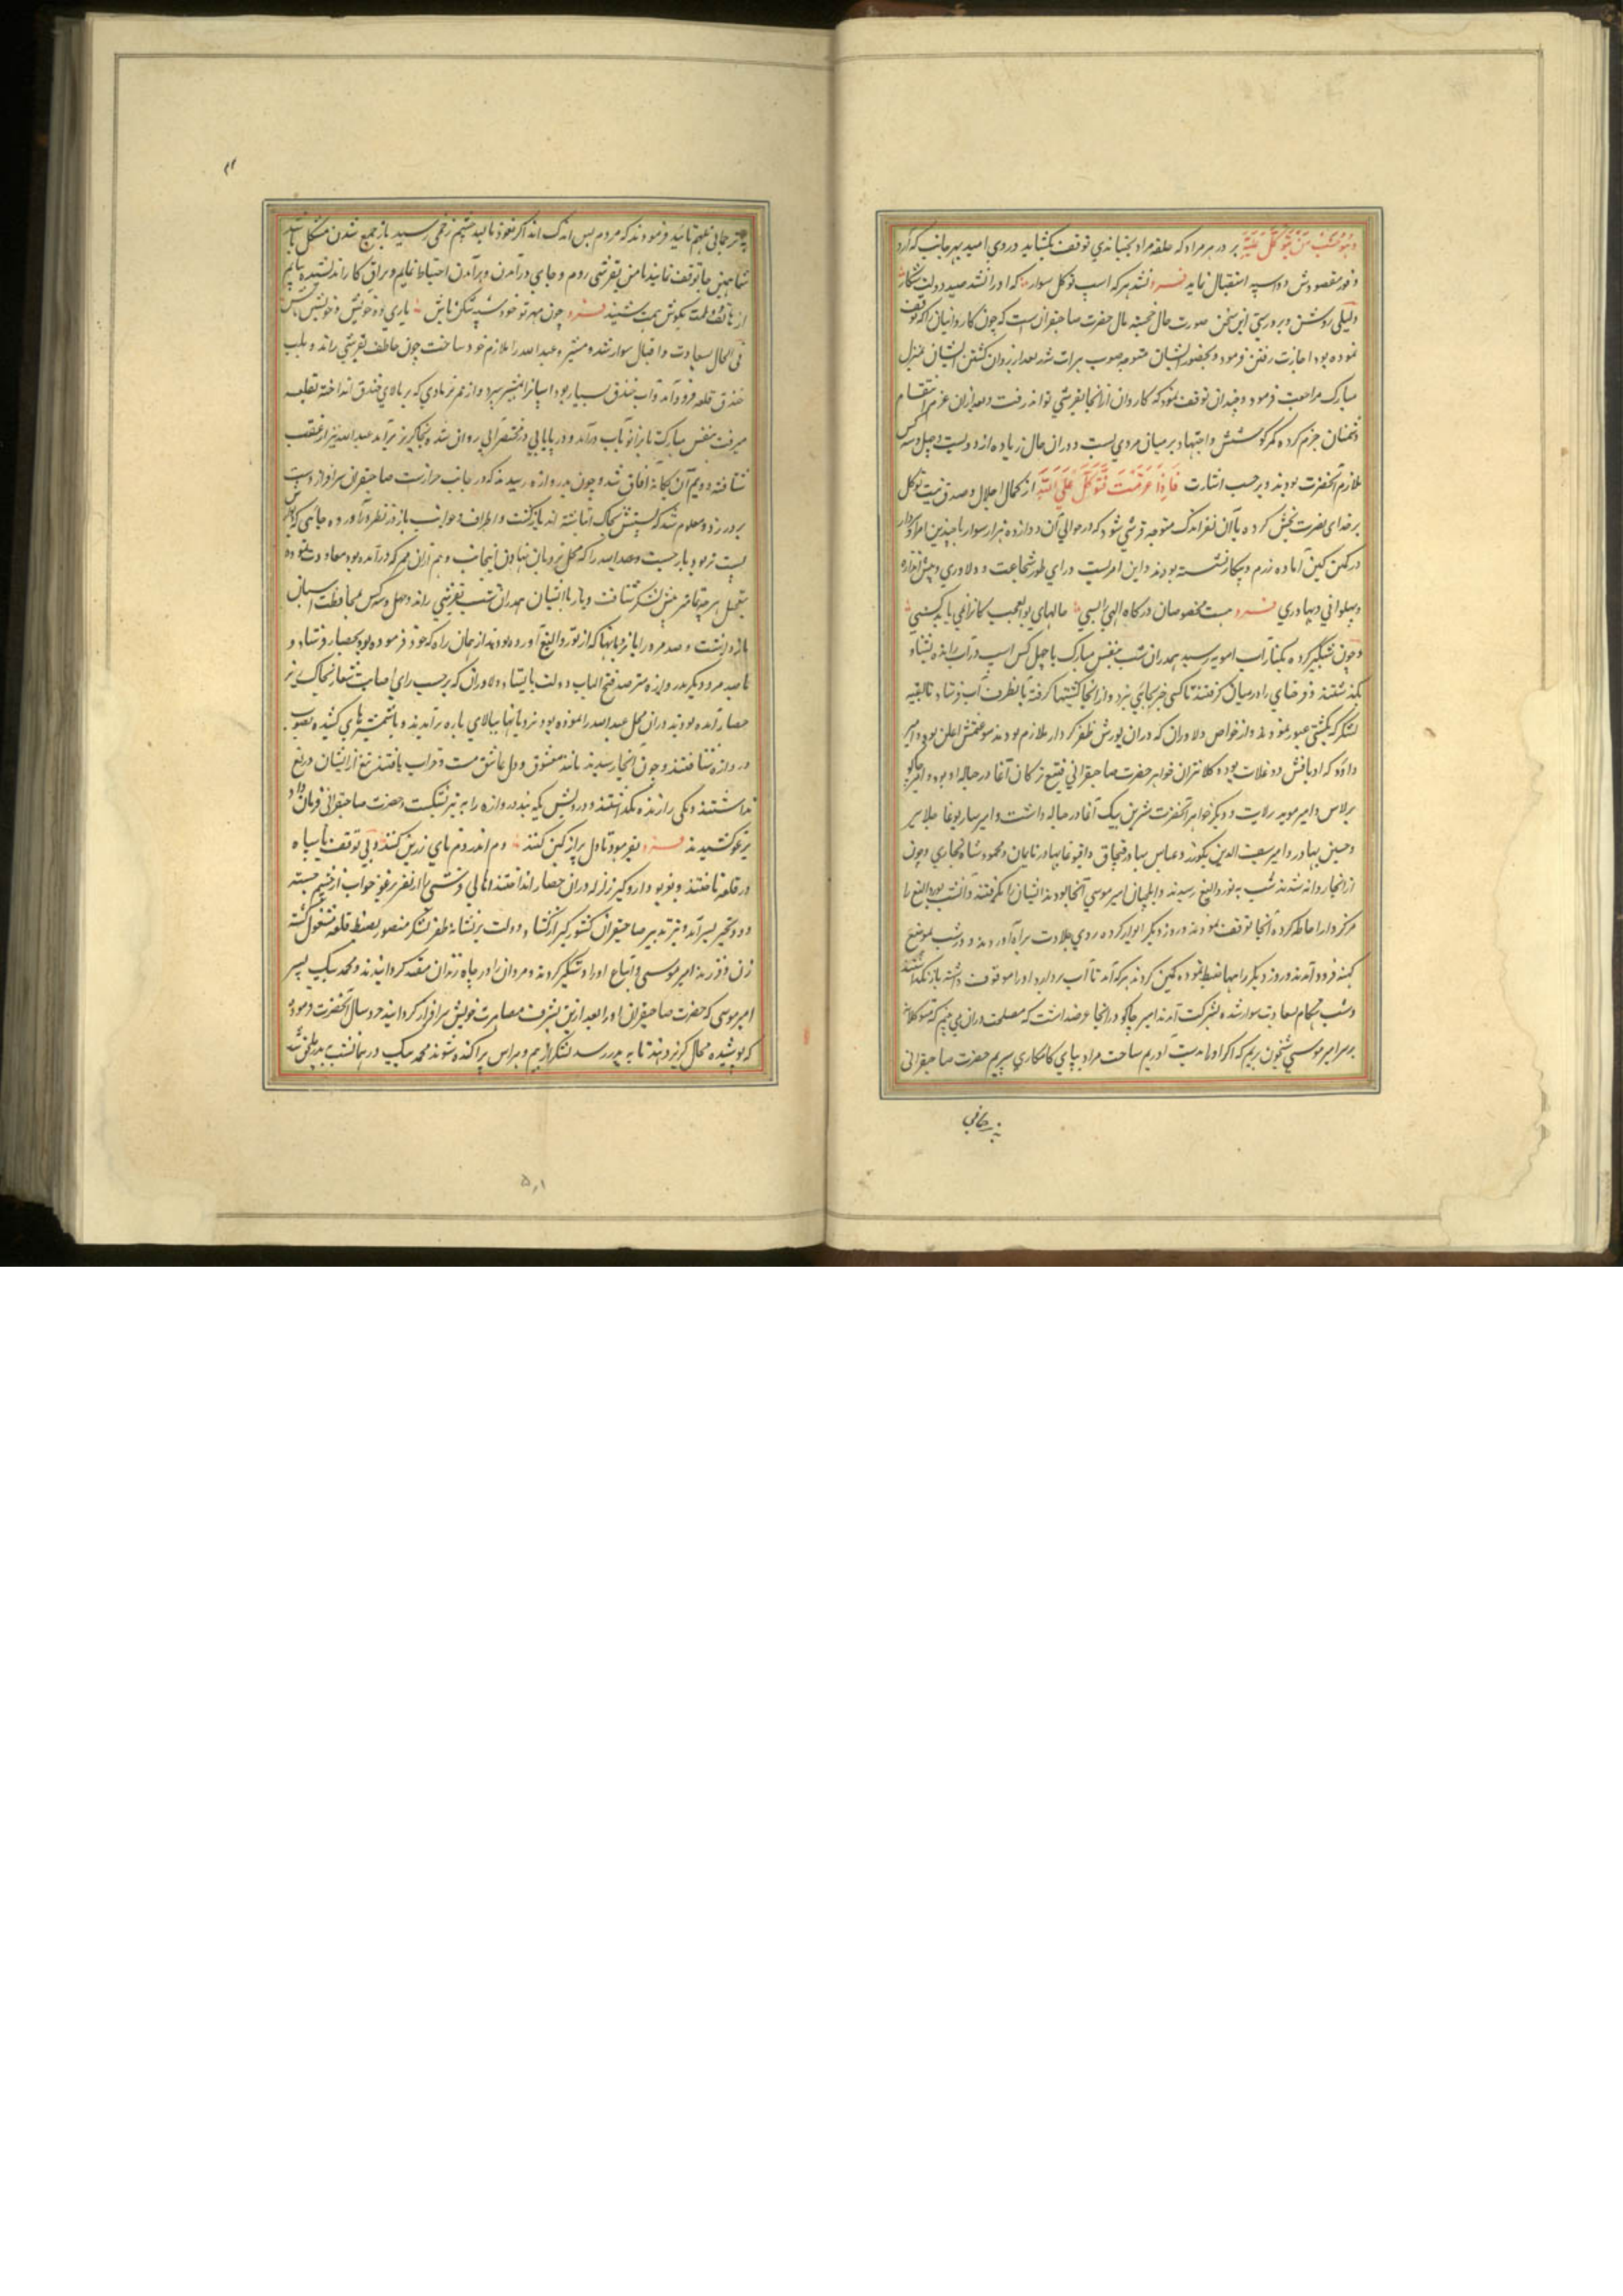 وهو یحب من یتوکل علیه بر در هر مراد که حلقه مراد بجنباند بی توقف بکشاید و روی امید بهر جانب که آرد
وفور مقصودش دو اسپه استقبال نماید فرد نشد هرکه اسپ توکل سوار که او را نشد صید دولت شکار
دلیلی روشن بر درستی این سخن صورت حال خجسته مآل حضرت صاحبقران است که چون کاروانیان را که توقف
نموده بود اجازت رفتن فرمود و بحضور ایشان متوجه صوب هرات شد بعد از روان کشتن ایشان بمنزل
مبارک مراجعت فرمود و چندان توقف نمود که کاروان از انجا بقرشی تواند رفت و بعد ازان عزم انتقام
دشمنان جزم کرده کمر کوشش و اجتهاد بر میان مردی بست و دران حال زیاده از دویست و چهل و سه کس
ملازم آنحضرت بودند و بر حسب اشارت فاذا عزمت فتوکل علی الله از کمال اجلال و صدق نیت توکل
بر خدای نصرت بخش کرده با آن نفر اندک متوجه قرشی شد که در حوالی آن دوازده هزار سوار با چندین امراء نامدار
در کمین کین آماده رزم و پیکار نشسته بودند و این امریست ورای طور شجاعت و دلاوری و بیش اندازه
و پهلوانی و بهادری فرد هست مخصوصان درکاه الهی را بسی حالهای بوالعجب کانرا نمی یابد کسی
و چون شبکیر کرده بکنار آب امویه رسید هم دران شب بنفس مبارک با چهل کس اسپ در آب رانده بشناو
بکذشتند و فرخنای راه در میان کرفتند تا کسی خبر بجایی نبرد و از انجا کشتیها کرفته بانطرف آب فرستاد تا بقیه
لشکر که بکشتی عبور نمودند و از خواص دلاوران که دران یورش ظفر کردار ملازم بودند سیورغتمش اغلن بود و امیر
داؤد که او باقش دوغلات بوده کلانتران خواهر حضرت صاحبقرانی قتلغ ترکان آغا در حباله او بود و امیر جاکو
برلاس و امیر موید ارلات و دیکر خواهر آنحضرت شیرین بیک آغا در حباله داشت و امیر ساربوغا جلایر
و حسین بهادر و امیر سیف الدین نکوز و عباس بهادر قبچاق و آقبوغا بهادر نایمان و محمود شاه بخاری و چون
از انجا روانه شدند شب به نوروالیغ رسیدند و ایلچیان امیر موسی آنجا بودند ایشان را بکرفتند و آن شب بوروالیغ را
مرکزوار احاطه کرده آنجا توقف نمودند و روز دیکر ایوار کرده روی جلادت براه آوردند و در شب بموضع
کهنه فرود آمدند و روز دیکر راهها ضبط نموده کمین کردند هر که آمد تا آب بردارد او را موقوف داشته باز نکذاشتند
و شب هنکام سعادت سوار شده بشیرکت آمدند امیر جاکو در انجا عرضداشت که مصلحت دران می بینم که متوکلا
بر سر امیر موسی شبخون بریم که اکر او را بدست آوریم ساحت مراد بپای کامکاری سپریم حضرت صاحبقرانی
بترجمانی
بترجمانی ملهم تائید فرمودند که مردم بس اندک اند اکر نعوذ بالله چشم زخمی رسید باز جمع شدن مشکل باشد
شما همین جا توقف نمایید تا من بقرشی روم و جای درآمدن و برآمدن احتیاط نمایم و براق کار اندیشیده بیایم
از هاتف دولت بکوش همت شنید فرد چون مهر تو خود سپه شکن باش یاری ده خویش خویشتن باش
فی الحال بسعادت و اقبال سوار شد و مبشر و عبدالله را ملازم خود ساخت چون خاطف بقرشی راند و بلب
خندق قلعه فرود آمد و آب خندق بسیار بود اسپانرا بمبشر سپرد و از ممر ناودی که بر بالای خندق انداخته بقلعه
میرفت بنفس مبارک تا بزانو بآب درآمد و در پایابی در مختصر آبی روان شده بخاکریز برآمد عبدالله نیز از عقب
شتافته دویم آن یکانه آفاق شد و چون بدروازه رسیدند که در جانب حزارست صاحبقران سرافراز دست
بر در زد و معلوم شد که پسش بخاک انباشته اند بازکشت و اطراف و جوانب باز در نظر درآورده جائی که دیوارش
پست تر بود باز جست و عبدالله را که محل نردبان نهادن اینجاست و هم ازان ممر که درآمده بود معاودت نموده
بتعجیل هرچه تمامتر پیش لشکر شتافت و باز با ایشان هم دران شب بقرشی راند و چهل و سه کس بمحافظت اسبان
بازداشت و صد مرد را با نردبانها که از نوروالیغ آورده بودند از همان راه که خود فرموده بود بحصار فرستاد و
با صد مرد دیکر بدروازه مترصد فتح الباب دولت بایستاد و دلاوران که بر حسب رای اصابت شعار بخاک ریز
حصار آمده بودند دران محل عبدالله را نموده بود نردبانها ببالای باره برآمدند و با شمشیرهای کشیده بصوب
دروازه شتافتند و چون آنجا رسیدند مانند معشوق و دل عاشق مست و خراب یافتند تیغ از ایشان دریغ
نداشتند و یکی را زنده نکذاشتند و در ویش یکه بند دروازه را به تبر بشکست و حضرت صاحبقرانی فرمان داد
برغو کشیدند فرد بفرمود تا دل پر از کین کنند دم اندر دم نای زرین کنند و بی توقف با سپاه
در قلعه تاختند و بغریو دار و کیر زلزله دران حصار انداختند اهالی قرشی را از نفیر برغو خواب از چشم جسته
دود تحیر بسر آمد و تیر تدبیر صاحبقران کشورکیر از کشاد دولت بر نشانه ظفر لشکر منصور بضبط قلعه مشغول کشته
زن و فرزند امیر موسی و اتباع او را دستکیر کردند و مردان را در چاه زندان مقید کردانیدند و محمد بیک پسر
امیر موسی که حضرت صاحبقران او را بعد ازین بشرف مصاهرت خویش سرافراز کردانید خردسال آنحضرت فرمود
که پوشیده مجال کریز دهند تا به پدر رسد لشکر از بیم و هراس پراکنده شوند محمد بیک در همان شب به پدر ملحق شد
۵۰۱